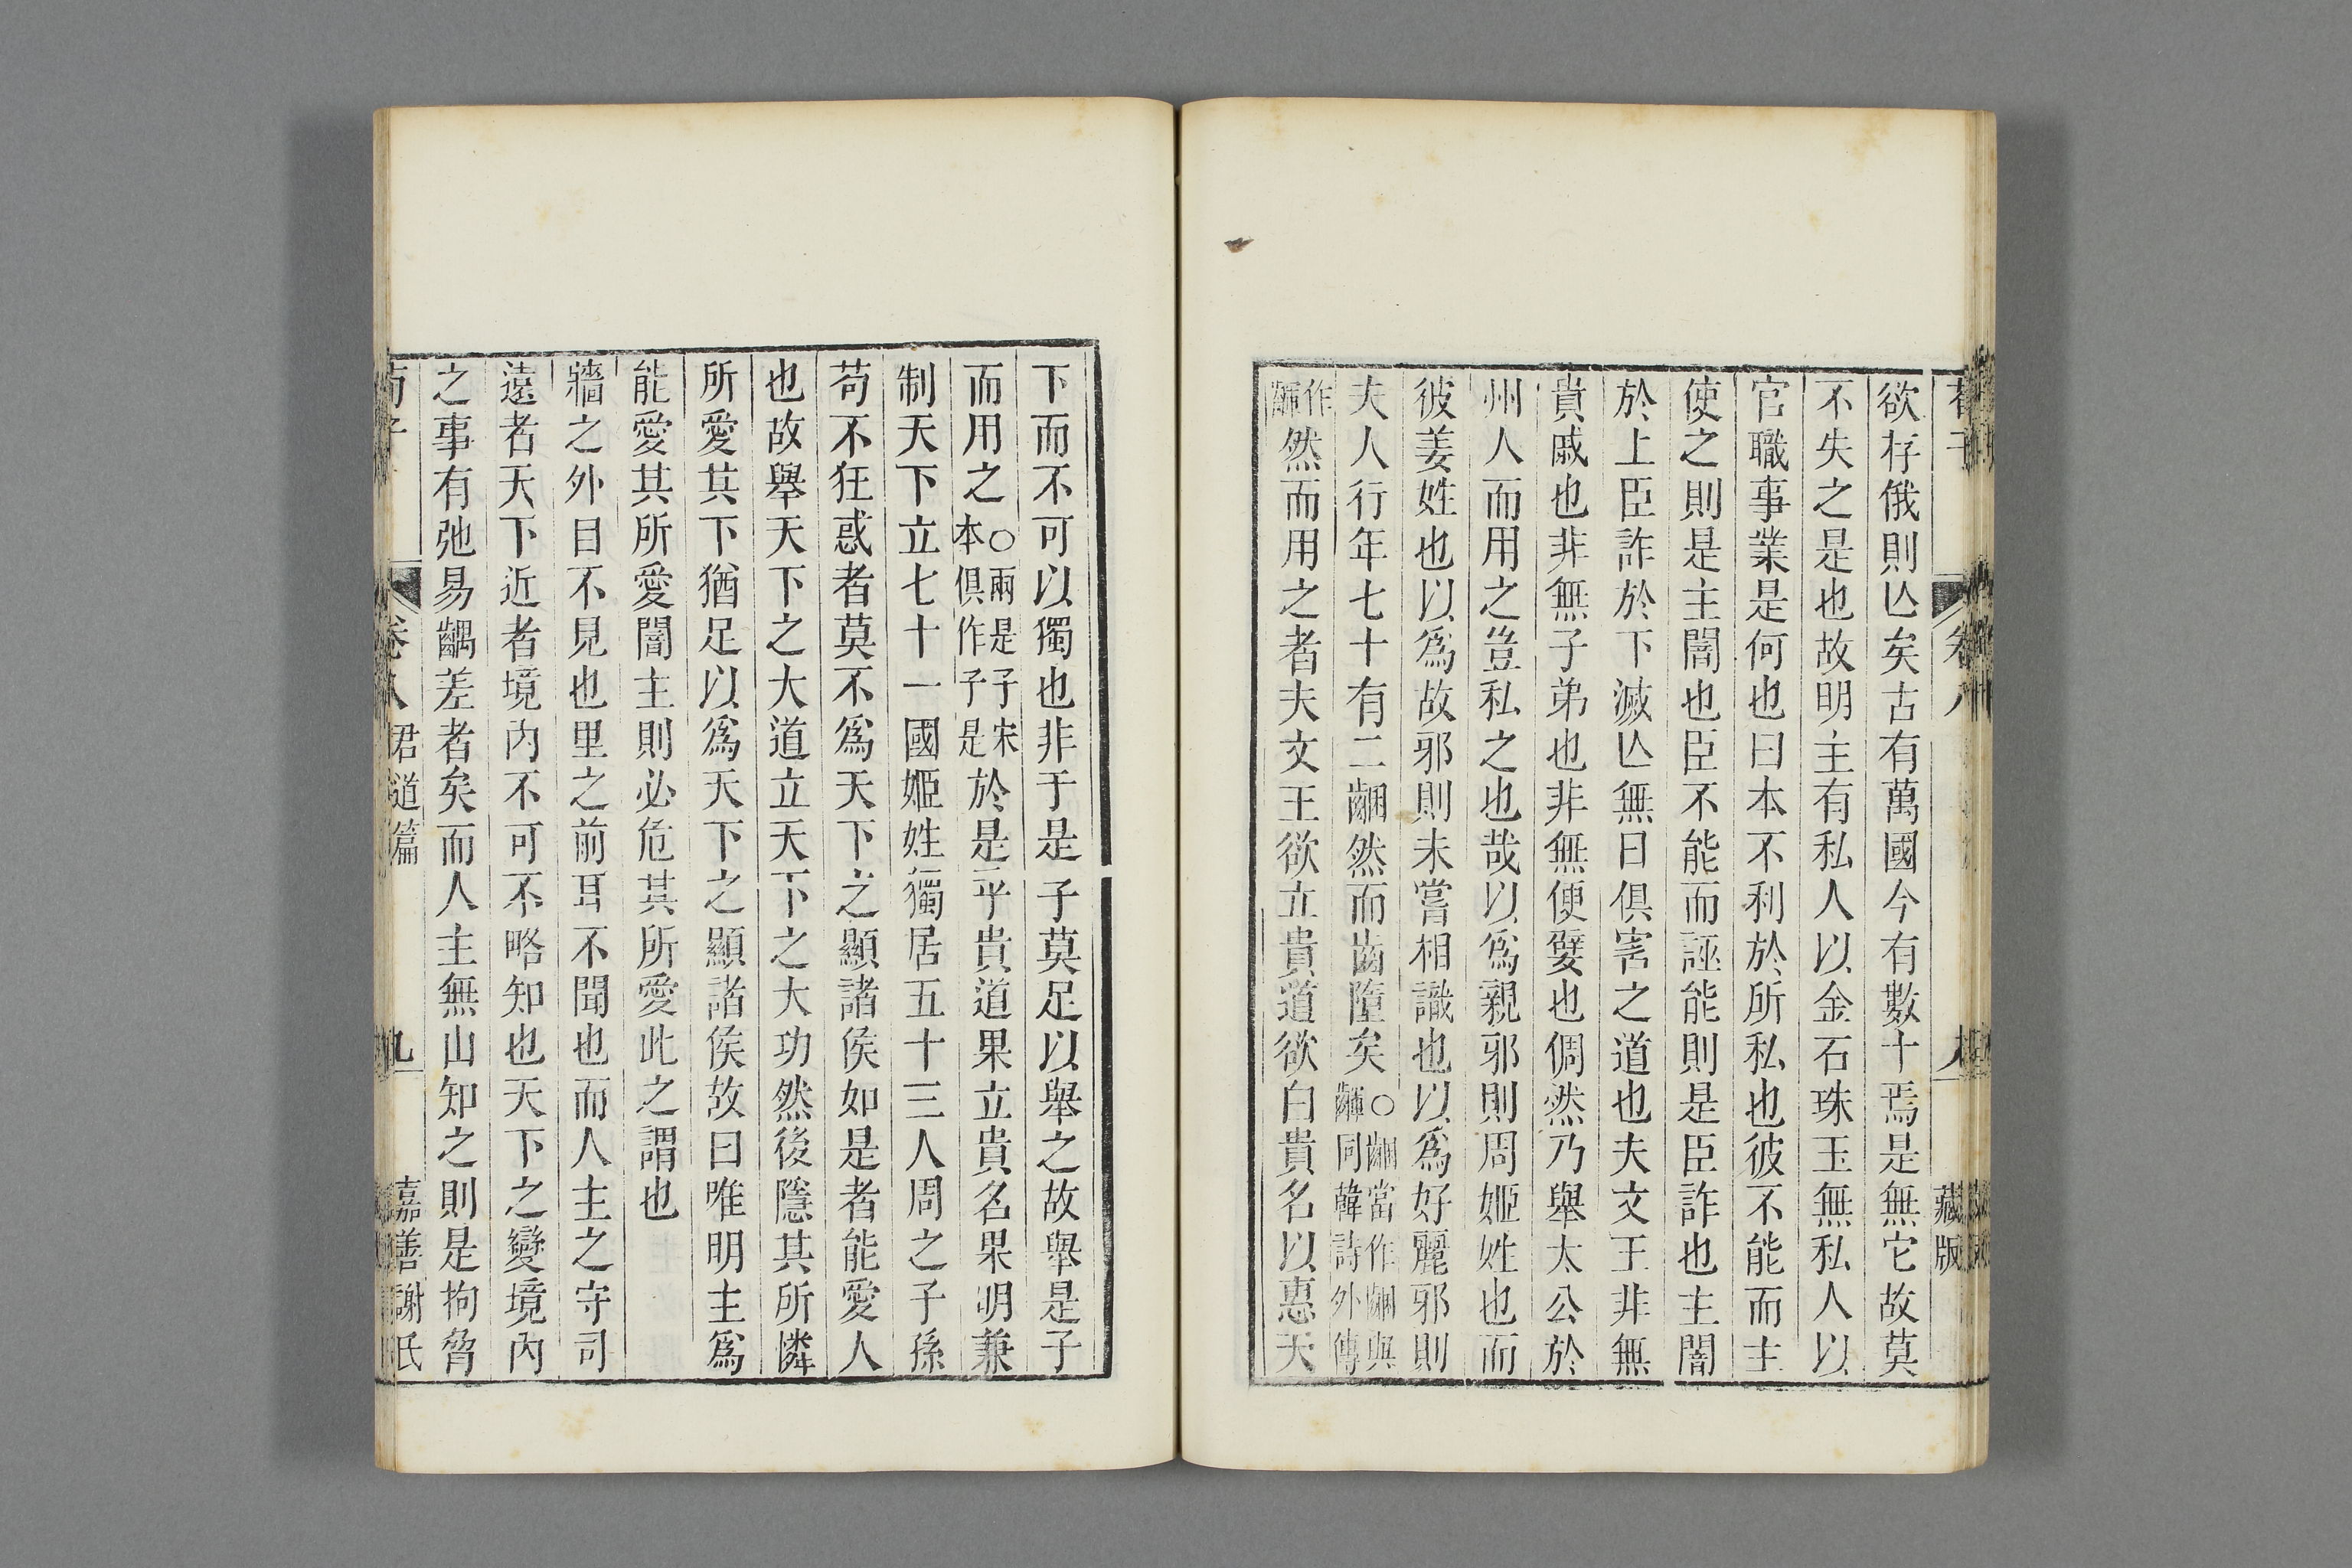 荀子 卷八 藏版
欲存俄則亾矣古有萬國今有數十焉是無它故莫
不失之是也故明主有私人以金石珠玉無私人以
官職事業是何也曰本不利於所私也彼不能而主
使之則是主闇也臣不能而誣能則是臣詐也主闇
於上臣詐於下滅亾無日俱害之道也夫文王非無
貴戚也非無子弟也非無便嬖也倜然乃舉太公於
州人而用之豈私之也哉以爲親邪則周姬姓也而
彼姜姓也以爲故邪則未嘗相識也以爲好麗邪則
夫人行年七十有二齫然而齒墮矣○齫當作齳與齳同韓詩外傳
作齳然而用之者夫文王欲立貴道欲白貴名以惠天
下而不可以獨也非于是子莫足以舉之故舉是子
而用之○兩是子宋本俱作子是於是乎貴道果立貴名果明兼
制天下立七十一國姬姓獨居五十三人周之子孫
苟不狂惑者莫不爲天下之顯諸侯如是者能愛人
也故舉天下之大道立天下之大功然後隱其所憐
所愛其下猶足以爲天下之顯諸侯故曰唯明主爲
能愛其所愛闇主則必危其所愛此之謂也
牆之外目不見也里之前耳不聞也而人主之守司
遠者天下近者境內不可不略知也天下之變境內
之事有弛易齵差者矣而人主無由知之則是拘脅
荀子 卷八 君道篇 九 嘉善謝氏